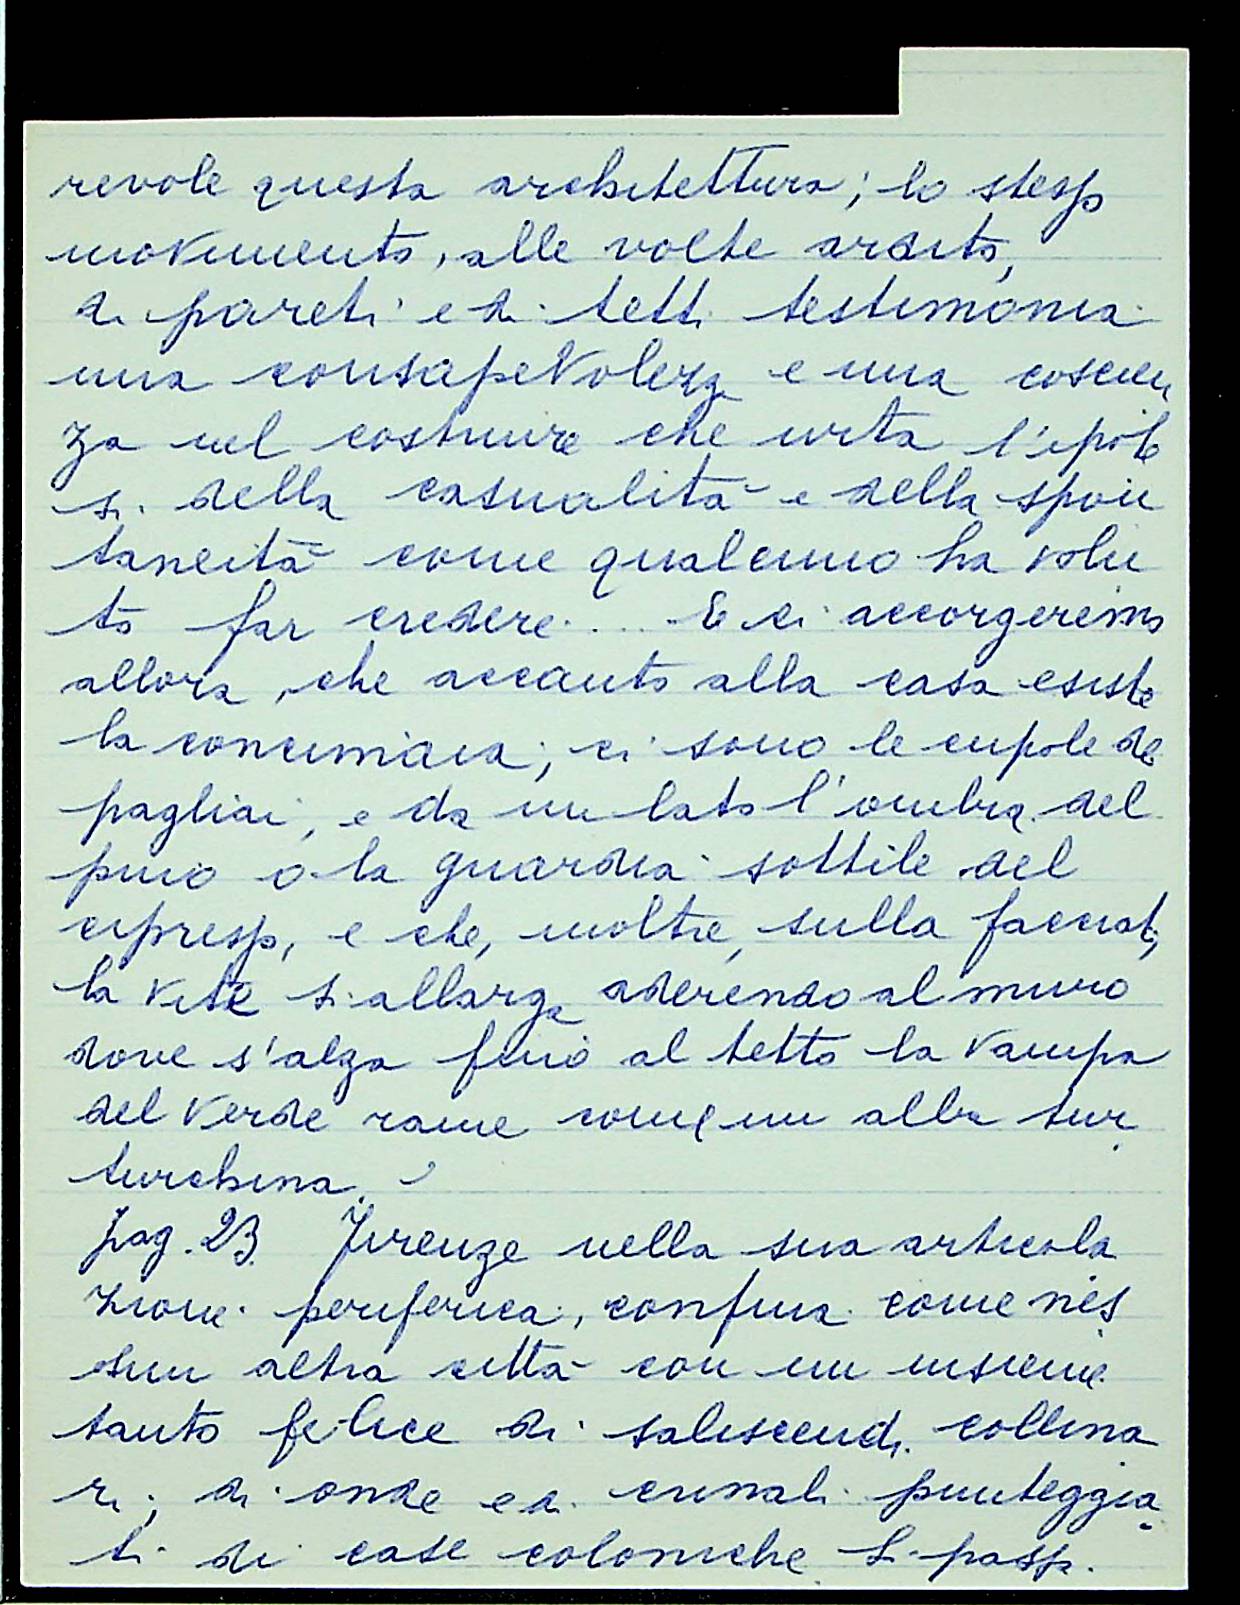 revole questa architettura; lo stesso
movimento, alle volte ardito,
di pareti e di tetti testimonia
una consapevolezza e una coscien
za nel costruire che urta l'ipote
si della casualità e della spon
taneità come qualcuno ha volu
to far credere... E ci accorgeremo
allora, che accanto alla casa esiste
la concimaia; ci sono le cupole de
pagliai, e da un lato l'ombra del
pino o la guardia sottile del
cipresso, e che, inoltre, sulla facciata,
la vite si allarga aderendo al muro
dove s'alza fino al tetto la vampa
del verde rame come un alba tur
turchina.
pag. 23. Firenze nella sua articola
zione periferica, confina come nes
sun altra città con un insieme
tanto felice di saliscendi collina
ri; di onde e di crinali punteggia
ti di case coloniche. Si passa.